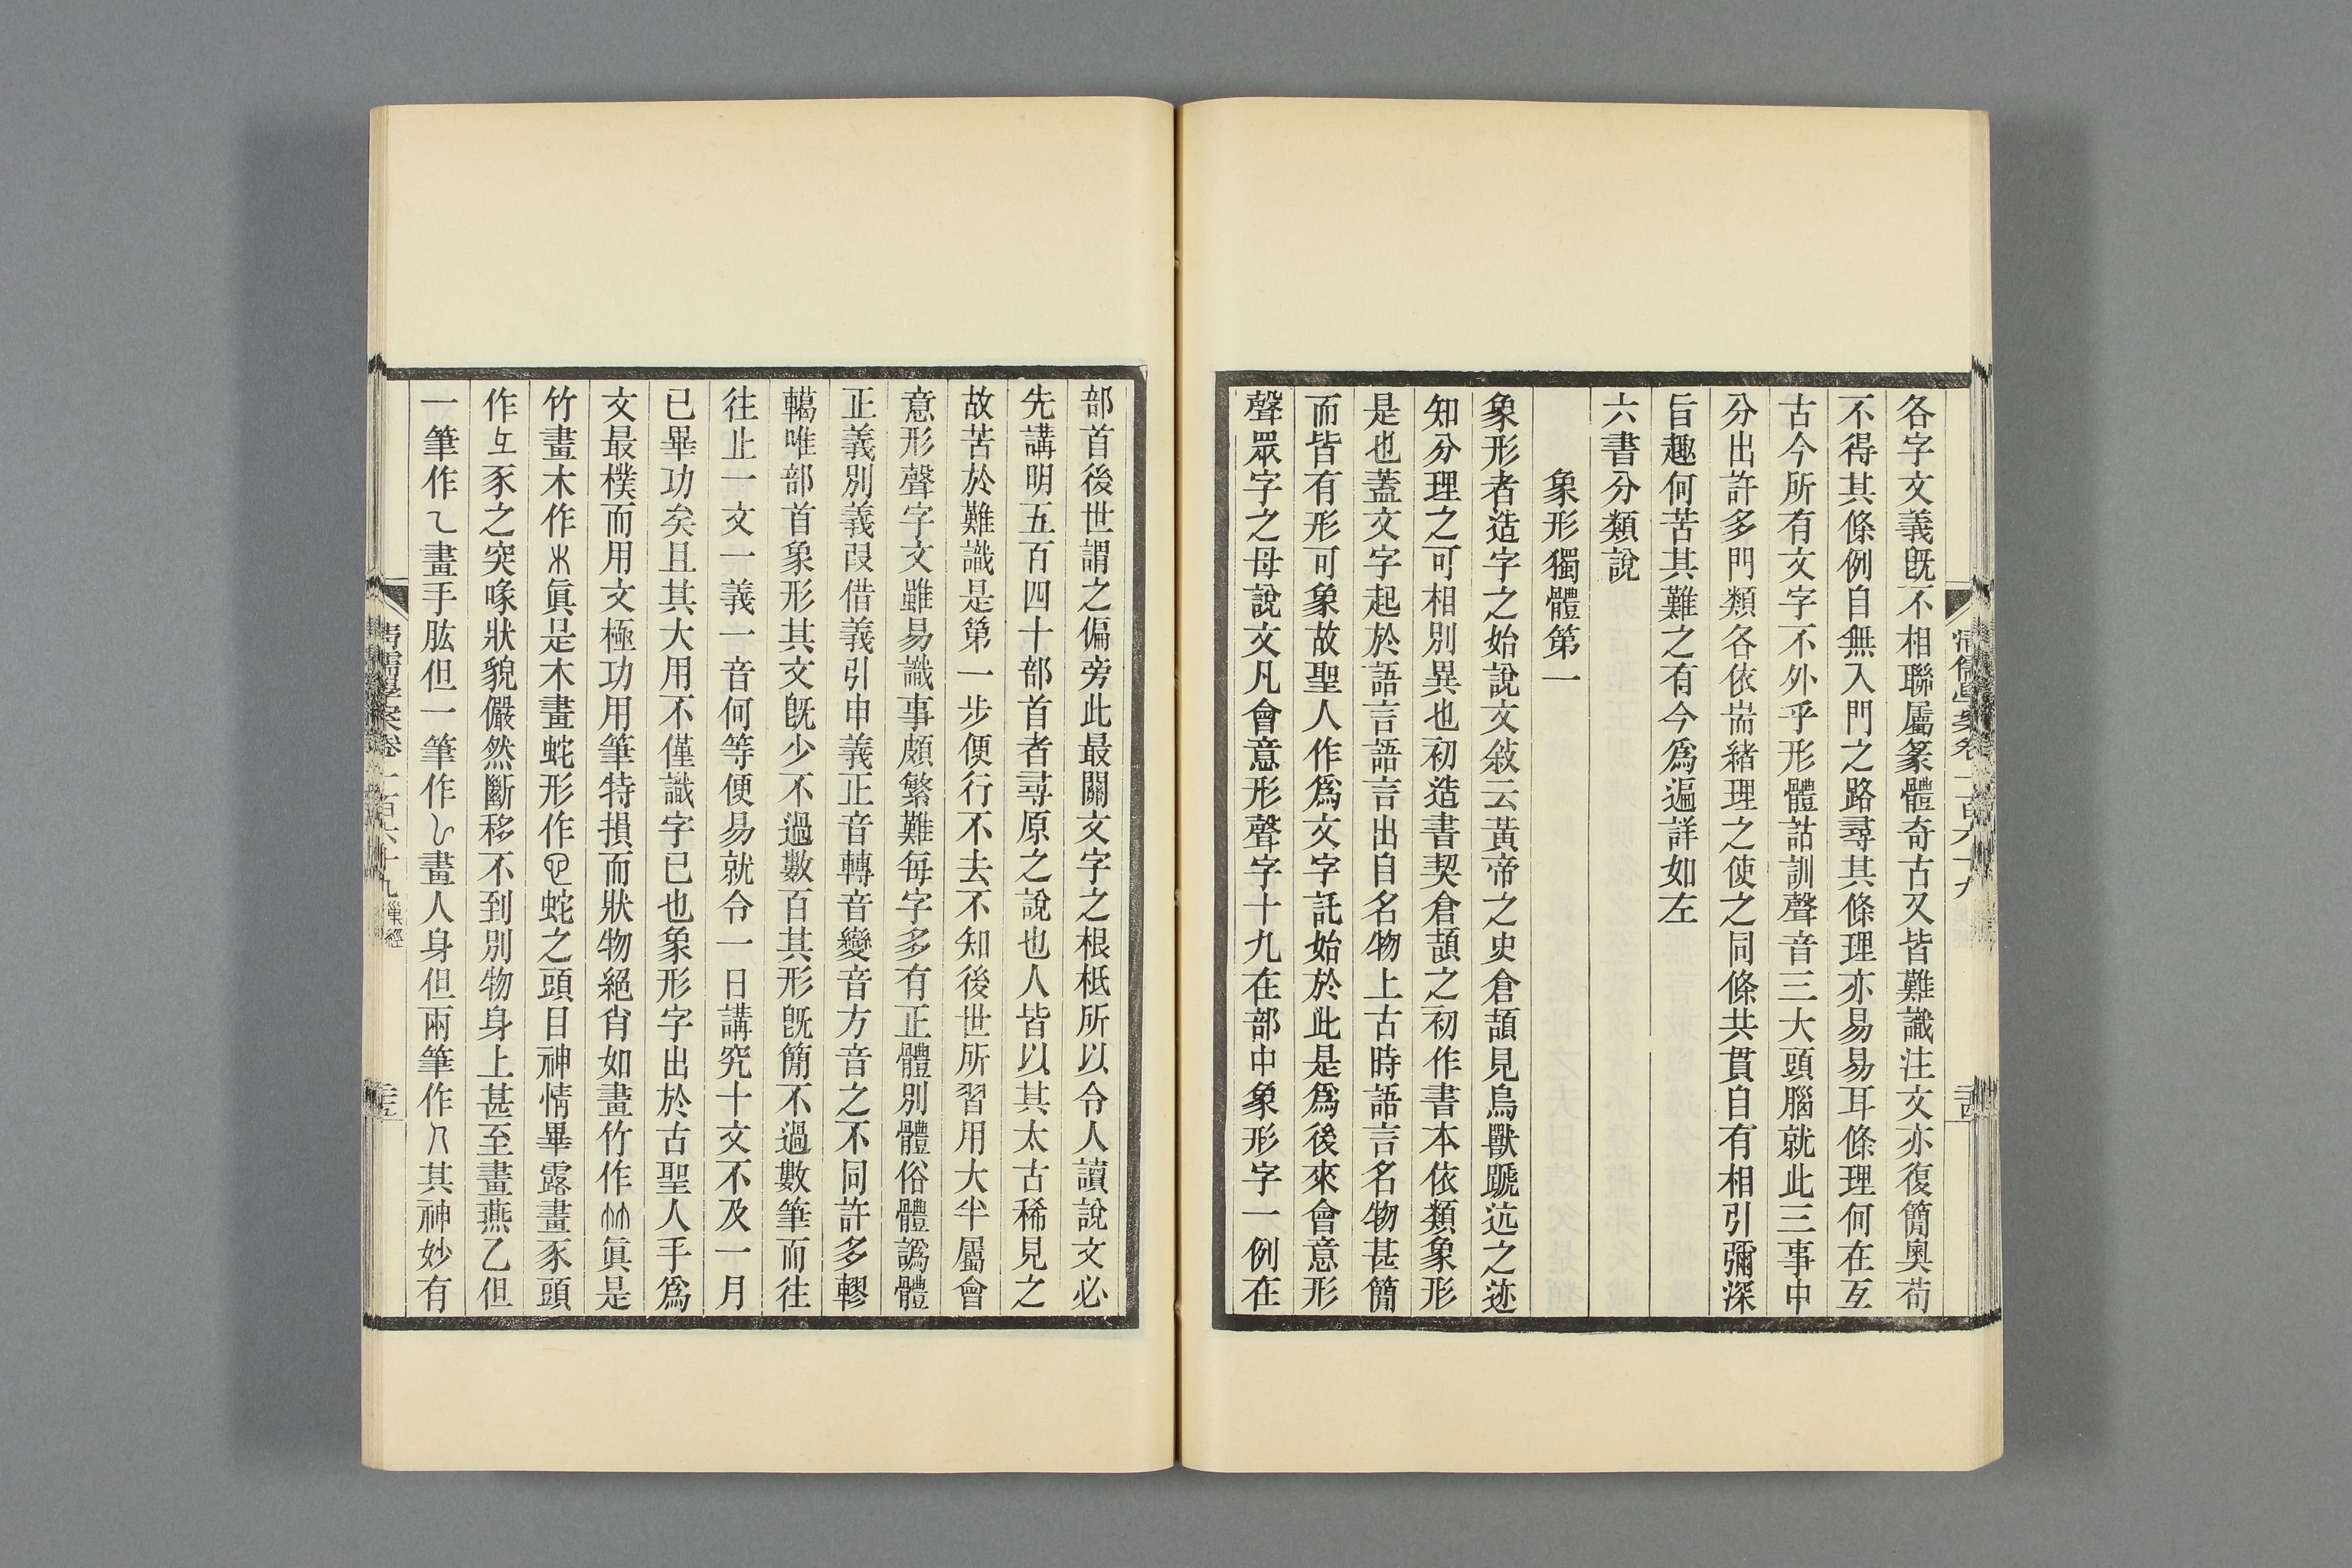 各字文義旣不相聯屬篆體奇古又皆難識注文亦復簡奧苟
不得其條例自無入門之路尋其條理亦易易耳條理何在互
古今所有文字不外乎形體詁訓聲音三大頭腦就此三事中
分出許多門類各依耑緒理之使之同條共貫自有相引彌深
旨趣何苦其難之有今爲遍詳如左
六書分類說
象形獨體第一
象形者造字之始說文敘云黃帝之史倉頡見鳥獸蹏迒之迹
知分理之可相別異也初造書契倉頡之初作書本依類象形
是也蓋文字起於語言語言出自名物上古時語言名物甚簡
而皆有形可象故聖人作爲文字託始於此是爲後來會意形
聲眾字之母說文凡會意形聲字十九在部中象形字一例在
部首後世謂之偏旁此最關文字之根柢所以令人讀說文必
先講明五百四十部首者尋原之說也人皆以其太古稀見之
故苦於難識是第一步便行不去不知後世所習用大半屬會
意形聲字文雖易識事頗繁難每字多有正體別體俗體譌體
正義別義叚借義引申義正音轉音變音方音之不同許多轇
轕唯部首象形其文旣少不過數百其形旣簡不過數筆而往
往止一文一義一音何等便易就令一日講究十文不及一月
已畢功矣且其大用不僅識字已也象形字出於古聖人手爲
文最樸而用文極功用筆特損而狀物絕肖如畫竹作眞是
竹畫木作眞是木畫蛇形作蛇之頭目神情畢露畫豕頭
作彑豕之突喙狀貌儼然斷移不到別物身上甚至畫燕乙但
一筆作乙畫手肱但一筆作畫人身但兩筆作其神妙有
清儒學案卷一百六十九